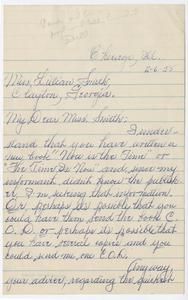 Chicago, Ill.
2-6-55
Miss, Lillian Smith,
Clayton, Georgia.
My Dear Miss. Smith:
I under-
stand that you have written a
new book "Now is the Time" or
The Time Is Now and, since my
informant didn't know the publish
er I'm asking that information.
Or perhaps its possibly that you
could have them send the book C.
O. D. or perhaps its possible that
you have several copies and you
could send me one C.O.D.
Anyway,
your advice, regarding the quickest